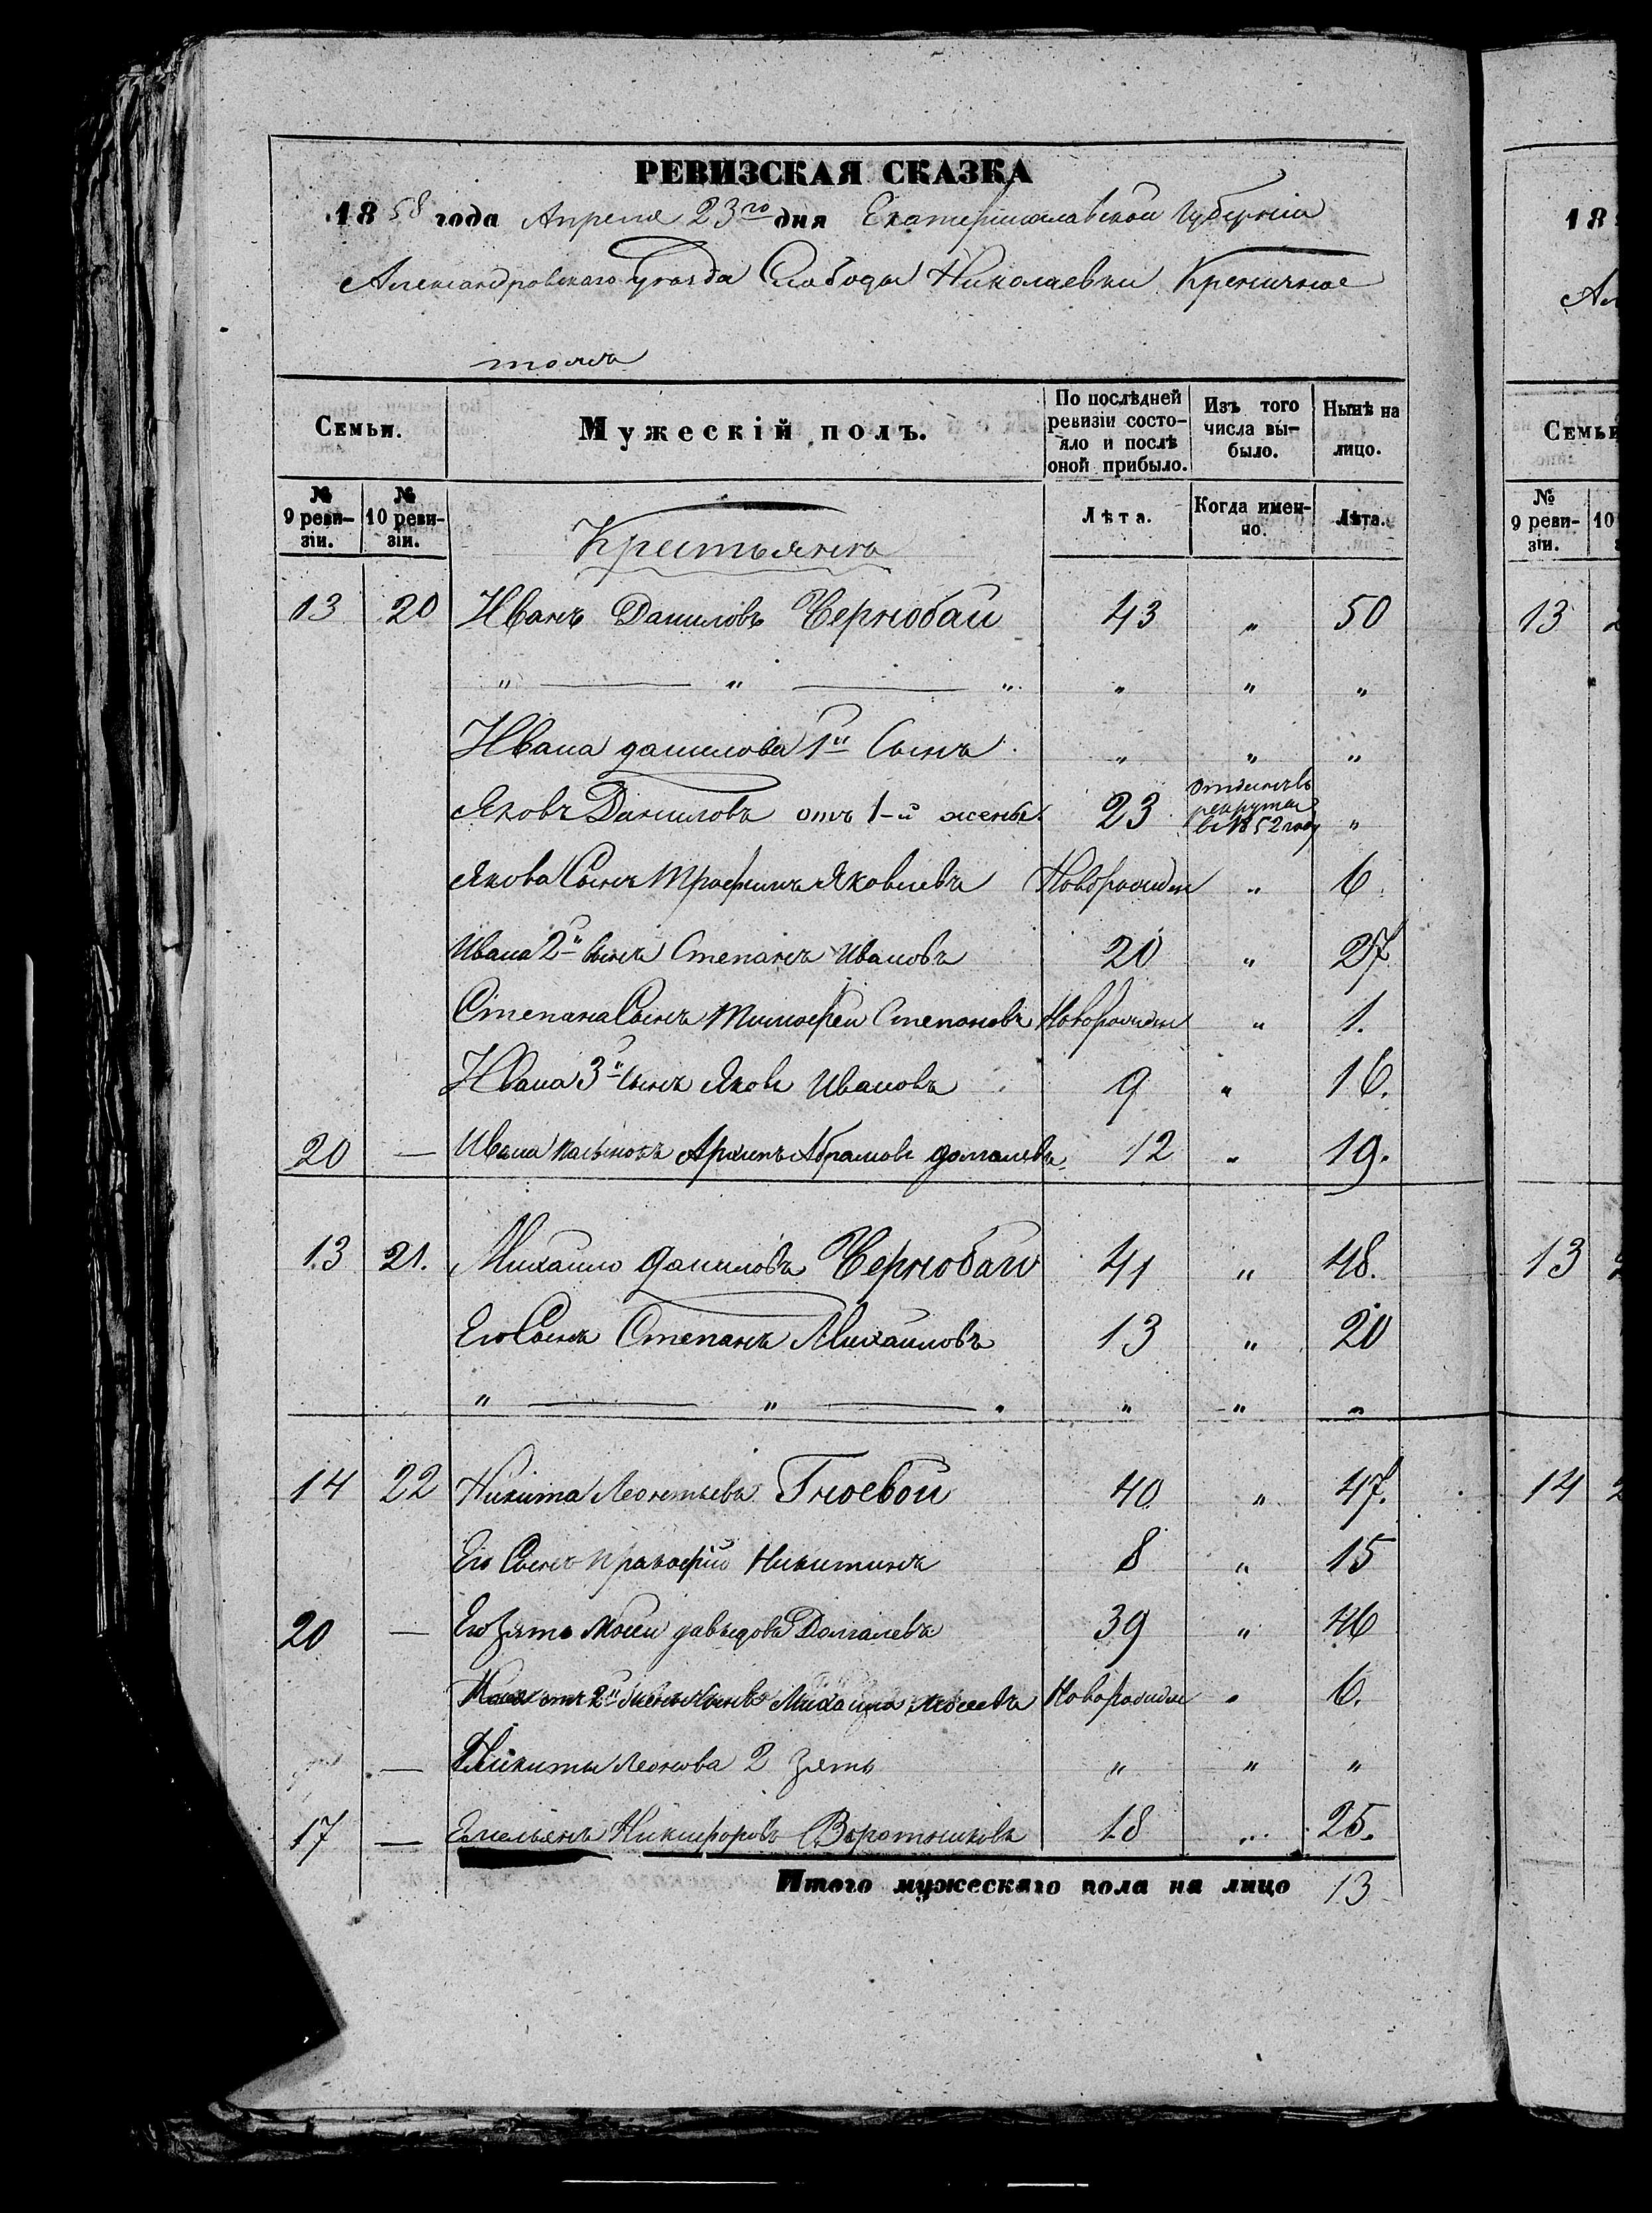 РЕВИЗСКАЯ СКАЗКА
1858 года Апреля 23го дня Екатеринославской Губерніи
Александровского уѣзда Слободы Николаевки Креничное
тожъ
Семьи.
Мужескій полъ.
По послѣдней ревизіи состояло и послѣ оной прибыло.
Изъ того числа выбыло.
Нынѣ на лицо.
№ 9 ревизіи.
№ 10 ревизіи.
Лѣта.
Когда именно.
Лѣта.
Крестьянъ
13 20 Иванъ Даниловъ Чернобай 43 " 50
" — " — " " " "
Ивана данилова 1й Сынъ " " "
Яковъ Даниловъ отъ 1-й жены 23 отданъ въ рекруты въ 1852 году "
Якова Сынъ Трофимъ Яковлевъ Новорожден " 6.
Ивана 2й Сынъ Степанъ Ивановъ 20 " 27
Степана Сынъ Тимофей Степановъ Новорожден " 1.
Ивана 3й Сынъ Яковъ Ивановъ 9 " 16.
20 — Ивана пасынокъ Архипъ Абрамовъ 12 " 19.
13 21. Михайло даниловъ Чернобай 41 " 48.
Его Сынъ Степанъ Михайловъ 13 " 20
" — " — " " " "
14 22 Никита Леонтьевъ Гноевой 40 " 47.
Его Сынъ Пракофій Никитинъ 8 " 15
20 — Его Зять Мосей давыдовъ Долгалевъ 39 " 46
отъ 2й Михаила Мосеевъ Новорожден " 6.
— Никиты Леонова 2 Зять " " "
17 — Емельянъ Никифоровъ Воротниковъ 18 " 25.
Итого мужескаго пола на лицо 13
18
Ал
Семьи
№ 9 ревизіи.
10
13 2
13 2
14 2